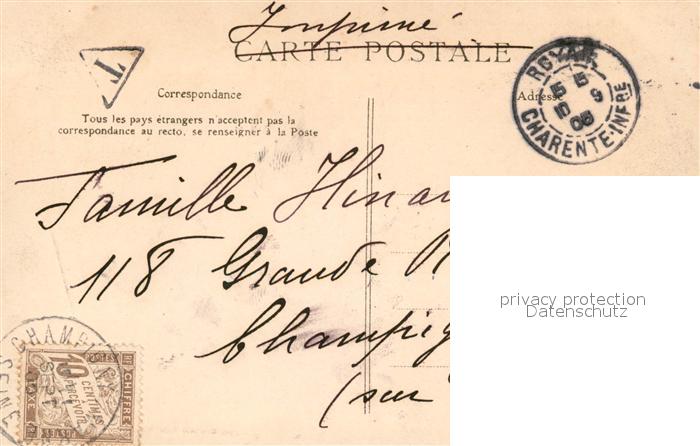 Imprimé
CARTE POSTALE
T
Correspondance
Adresse
Tous les pays étrangers n'acceptent pas la
correspondance au recto, se renseigner à la Poste
ROYAN
15 15
10 9
06
CHARENTE-INFRE
Famille Hinau
118 Grande R
Champig
(sur
privacy protection
Datenschutz
CHAMPIGNY
SEINE
POSTES
10
CENTIMES
A PERCEVOIR
CHIFFRE
TAXE
POSTES